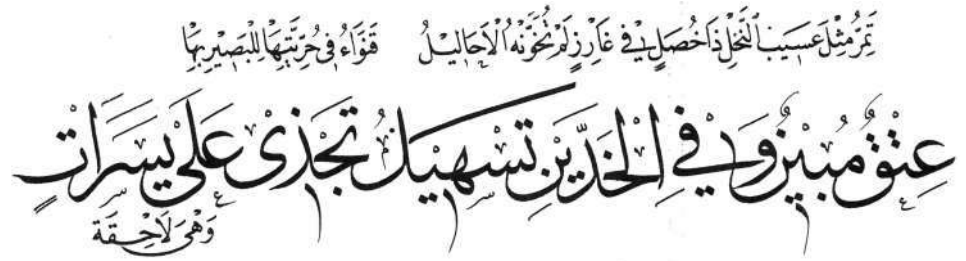 تَمُرُّ مِثْلَ عَسِيبِ النَّخْلِ ذَا خُصَلٍ فِي غَارِزٍ لَمْ تُخَوِّنْهُ الْأَحَالِيلُ قَنْوَاءُ فِي حُرَّتَيْهَا لِلْبَصِيرِ بِهَا
عِتْقٌ مُبِينٌ وَفِي الْخَدَّيْنِ تَسْهِيلُ تَخْذِي عَلَى يَسَرَاتٍ
وَهْيَ لَاحِقَةٌ